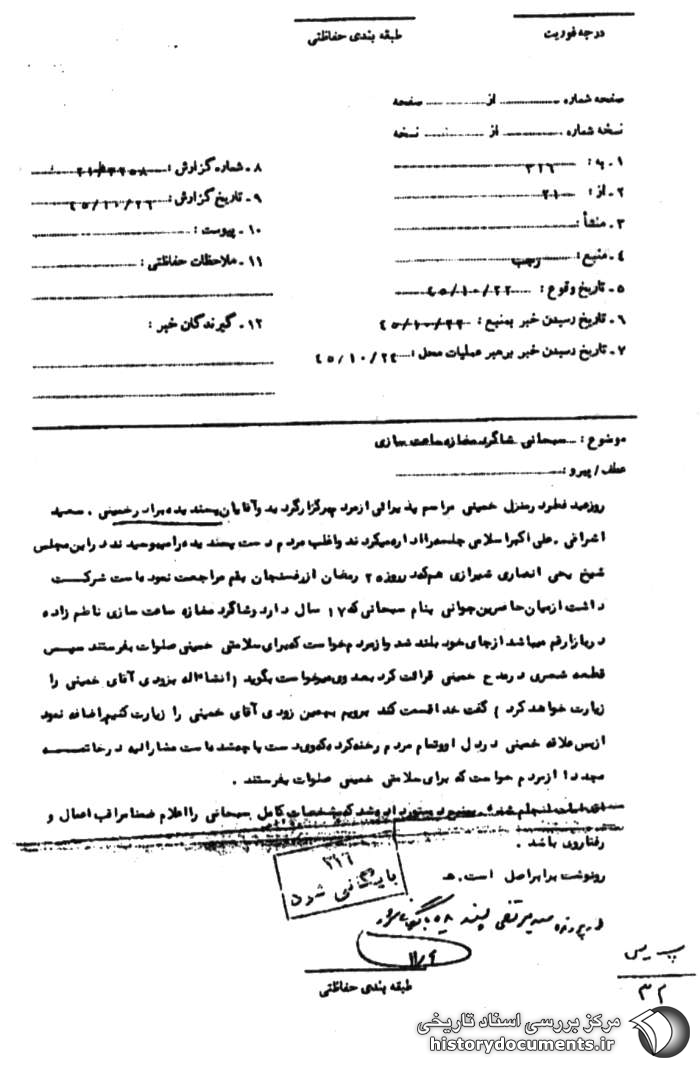 درجه فوریت
طبقه بندی حفاظتی
صفحه شماره ........ از ........ صفحه
نسخه شماره ........ از ........ نسخه
۱ـ به : ۳۱۶
۲ـ از : ۲۱
۳ـ منشأ :
۴ـ منبع : رجب
۵ـ تاریخ وقوع : ۴۵/۱۰/۲۲
۶ـ تاریخ رسیدن خبر بمنبع : ۴۵/۱۰/۲۲
۷ـ تاریخ رسیدن خبر برهبر عملیات محل : ۴۵/۱۰/۲۴
۸ـ شماره گزارش :
۹ـ تاریخ گزارش : ۴۵/۱۰/۲۶
۱۰ـ پیوست :
۱۱ـ ملاحظات حفاظتی :
۱۲ـ گیرندگان خبر :
موضوع : سبحانی شاگرد مغازه ساعت سازی
عطف / پیرو :
روز عید فطر در منزل خمینی مراسم پذیرائی از مردم برگزار گردید و آقایان پسندیده برادر خمینی . سعید
اشراقی . علی اکبر اسلامی جلسه را اداره میکردند و اغلب مردم دست پسندیده را میبوسیدند در این مجلس
شیخ یحیی انصاری شیرازی هم که در روز ۲۵ رمضان از رفسنجان بقم مراجعت نموده است شرکت
داشت از میان حاضرین جوانی بنام سبحانی که ۱۷ سال دارد و شاگرد مغازه ساعت سازی ناظم زاده
در بازار قم میباشد از جای خود بلند شد و از مردم خواست که برای سلامتی خمینی صلوات بفرستند سپس
قطعه شعری در مدح خمینی قرائت کرد بعد وی میخواست بگوید (انشاءاله بزودی آقای خمینی را
زیارت خواهد کرد ) گفت خدا قسمت کند برویم بهمین زودی آقای خمینی را زیارت کنیم اضافه نمود
از بس علاقه خمینی در دل او و تمام مردم رخنه کرده که وی دست پاچه شده است مشارالیه در خاتمه
مجددا از مردم خواست که برای سلامتی خمینی صلوات بفرستند .
اقدامات انجام شده : بمنبع دستور داده شد که مشخصات کامل سبحانی را اعلام ضمنا مراقب اعمال و
رفتار وی باشد .
رونوشت برابر اصل است . هـ
۳۱۶
بایگانی شود
در پرونده سید مرتضی پسندیده بایگانی شود
۱۱/۴
طبقه بندی حفاظتی
۳۲
مرکز بررسی اسناد تاریخی
historydocuments.ir